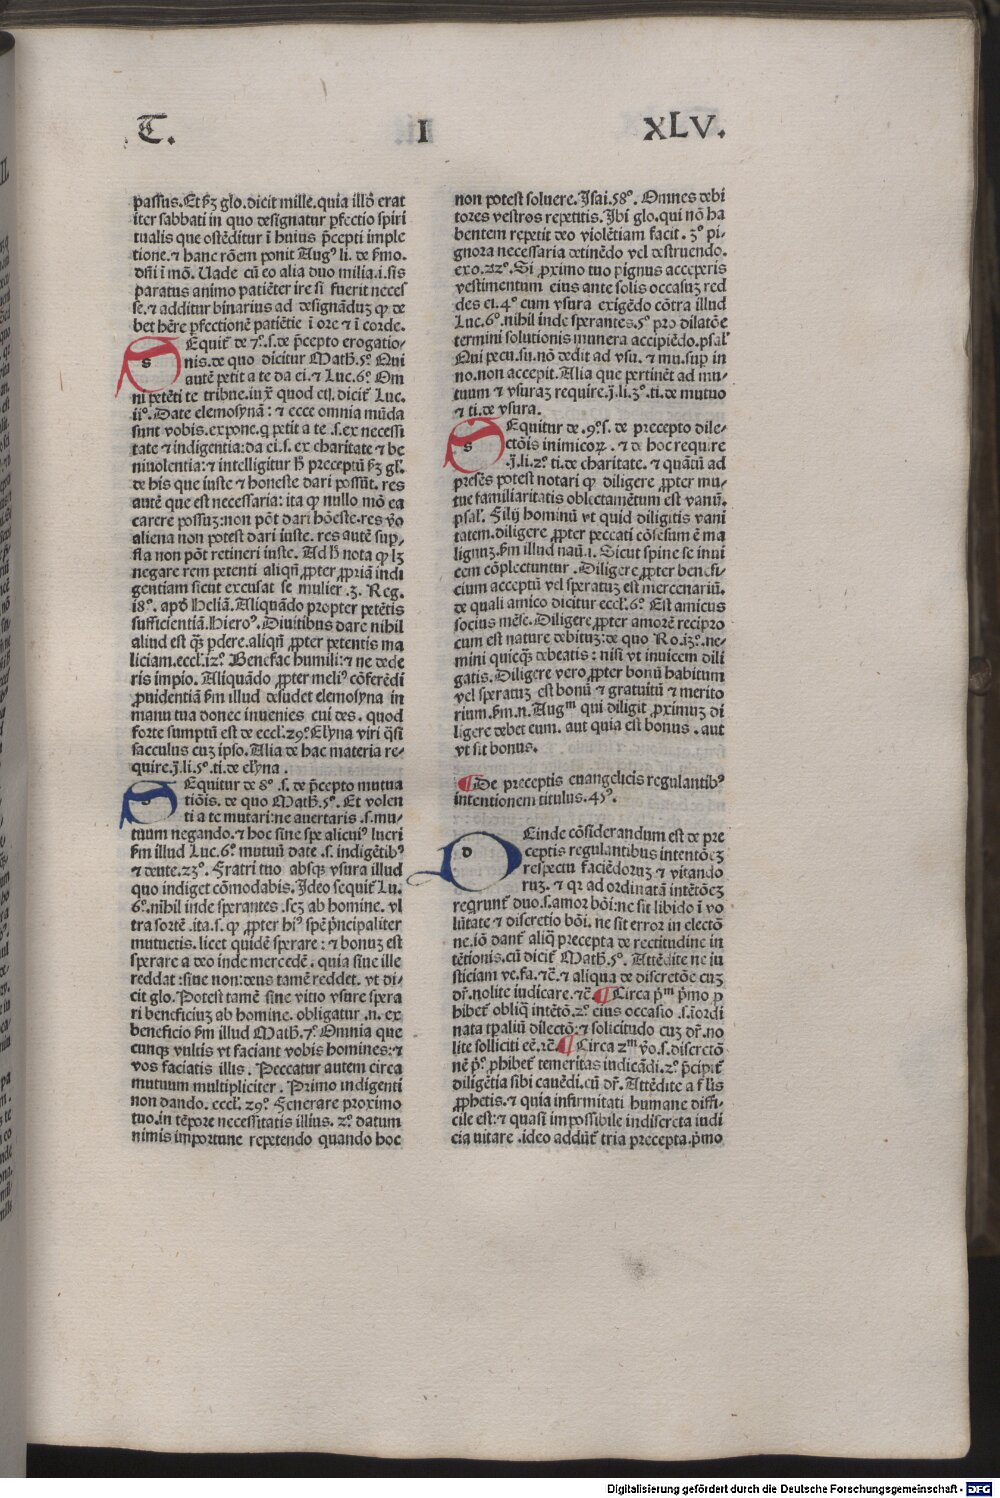 T.
I
XLV.
passus. Et ẜꝫ glo. dicit mille. quia illō erat
iter sabbati in quo designatur ꝑfectio spiri
tualis que ostēditur ī huius p̄cepti imple
tione. ⁊ hanc rōem ponit Augꝰ li. de ẜmo.
dn̄i ī mō. Uade cū eo alia duo milia. i. sis
paratus animo patiēter ire si fuerit neces
se. ⁊ additur binarius ad designāduꝫ qꝫ de
bet hēre ꝑfectionē patiētie ī ore ⁊ ī corde.
sEquit̄ de 7º. s. de p̄cepto erogatio⸗
nis. de quo dicitur Math̄. 5º. Qui
autē petit a te da ei. ⁊ Luc. 6º. Om
ni petēti te tribue. iux̄ quod etj. dicit̄ Luc.
iiº. Date elemosynā: ⁊ ecce omnia mūda
sunt vobis. expone. q petit a te .s. ex necessi
tate ⁊ indigentia: da ei. s. ex charitate ⁊ be
niuolentia: ⁊ intelligitur h̄ preceptū ẜꝫ gl̄.
de his que iuste ⁊ honeste dari possūt. res
autē que est necessaria: ita qꝫ nullo mō ea
carere possuꝫ: non pōt dari hōeste. res ṽo
aliena non potest dari iuste. res autē sup̱⸗
flua non pōt retineri iuste. Ad h̄ nota qꝫ lꝫ
negare rem petenti aliqn̄ ꝓpter ꝓpriā indi
gentiam sicut excusat se mulier .3. Reg.
i8º. apḋ Heliā. Aliquādo propter petētis
sufficientiā. Hieroꝰ. Diuitibus dare nihil
aliud est qꝫ̄ ꝑdere. aliqn̄ ꝓpter petentis ma
liciam. eccl̄. i2º. Benefac humili: ⁊ ne dede
ris impio. Aliquādo ꝓpter meliꝰ cōferēdi
ꝓuidentiā ẜm illud desudet elemosyna in
manu tua donec inuenies cui des. quod
forte sumptū est de eccl̄. 29º. Elyna viri q̄si
sacculus cuꝫ ipso. Alia de hac materia re⸗
quire. j. li. 5º. ti. de elyna.
sEquitur de 8º .s. de p̄cepto mutua
tiōis. de quo Math̄. 5º. Et volen
ti a te mutari: ne auertaris .s. mu⸗
tuum negando. ⁊ hoc sine spe alicuiꝰ lucri
ẜm illud Luc. 6º. mutuū date .s. indigētibꝰ
⁊ deute. 23º. Fratri tuo absqꝫ vsura illud
quo indiget cōmodabis. Ideo sequit̄ Lu.
6º. nihil inde sperantes .scꝫ ab homine. vl
tra sortē .ita. s. qꝫ ꝓpter hiꝰ spē p̄ncipaliter
mutuetis. licet quidē sperare: ⁊ bonuꝫ est
sperare a deo inde mercedē. quia siue ille
reddat: siue non: deus tamē reddet. vt di⸗
cit glo. Potest tamē sine vitio vsure spera
ri beneficiuꝫ ab homine. obligatur .n. ex
beneficio ẜm illud Math̄. 7º. Omnia que
cunqꝫ vultis vt faciant vobis homines: ⁊
vos faciatis illis. Peccatur autem circa
mutuum multipliciter. Primo indigenti
non dando. eccl̄. 29º. Fenerare proximo
tuo. in tēpore necessitatis illius. 2º. datum
nimis importune repetendo quando hoc
non potest soluere. Isai. 58º. Omnes debi
tores vestros repetitis. Ibi glo. qui nō ha
bentem repetit deo violētiam facit. 3º. pi⸗
gnora necessaria detinēdo vel destruendo.
exo. 22º. Si ꝓximo tuo pignus acceperis
vestimentum eius ante solis occasuꝫ red
des ei. 4º cum vsura exigēdo cōtra illud
Luc. 6º. nihil inde sperantes. 5º pro dilatōe
termini solutionis munera accipiēdo. psal̄
Qui pecu. su. nō dedit ad vsu. ⁊ mu. sup̱ in
no. non accepit. Alia que pertinēt ad mu⸗
tuum ⁊ vsuraꝫ require. j. li. 3º. ti. de mutuo
⁊ ti. de vsura.
sEquitur de .9º. s. de precepto dile⸗
ctōis inimicoꝝ. ⁊ de hoc require
.j. li. 2º. ti. de charitate. ⁊ quātū ad
presēs potest notari qꝫ diligere ꝓpter mu⸗
tue familiaritatis oblectamētum est vanū.
psal̄. Filij hominū vt quid diligitis vani
tatem. diligere ꝓpter peccati cōsēsum ē ma
lignuꝫ. ẜm illud naū. i. Sicut spine se inui
cem cōplectuntur. Diligere ꝓpter benefi⸗
cium acceptū vel speratuꝫ est mercenariū.
de quali amico dicitur eccl̄. 6º. Est amicus
socius mēse. Diligere ꝓpter amorē recipro
cum est nature debituꝫ: de quo Ro. i3º. ne⸗
mini quicqꝫ debeatis: nisi vt inuicem dili
gatis. Diligere vero ꝓpter bonū habitum
vel speratuꝫ est bonū ⁊ gratuitū ⁊ merito
rium. ẜm. n. Augᵐ qui diligit ꝓximuꝫ di
ligere debet eum. aut quia est bonus. aut
vt sit bonus.
¶De preceptis euangelicis regulantibꝰ
intentionem titulus. 45º.
dEinde cōsiderandum est de pre
ceptis regulantibus intentōeꝫ
respectu faciēdoruꝫ ⁊ vitando
ruꝫ. ⁊ qꝛ ad ordinatā intētōeꝫ
regrunt̄ duo. s. amor bōi: ne sit libido ī vo
lūtate ⁊ discretio bōi. ne sit error in electō
ne. iō dant̄ aliq̄ precepta de rectitudine in
tētionis. cū dicit̄ Math̄. 5º. Attēdite ne iu
sticiam ve. fa. ⁊c̄. ⁊ aliqua de discretōe cuꝫ
dr̄. nolite iudicare. ⁊c̄. ¶Circa p̄ᵐ p̄mo ꝓ
hibet̄ obliq̄ intētō. 2º. eius occasio .s. īordi
nata tp̱aliū dilectō: ⁊ solicitudo cuꝫ dr̄. no
lite solliciti eē. ⁊c̄. ¶Circa 2ᵐ ṽo. s. discretō
nē p̄º. ꝓhibet̄ temeritas iudicādi. 2º. p̄cipit̄
diligētia sibi cauēdi. cū dr̄. Attēdite a fl̄is
ꝓphetis. ⁊ quia infirmitati humane diffi⸗
cile est: ⁊ quasi impossibile indiscreta iudi
cia uitare. ideo addūt̄ tria precepta. p̄mo
Digitalisierung gefördert durch die Deutsche Forschungsgemeinschaft - DFG